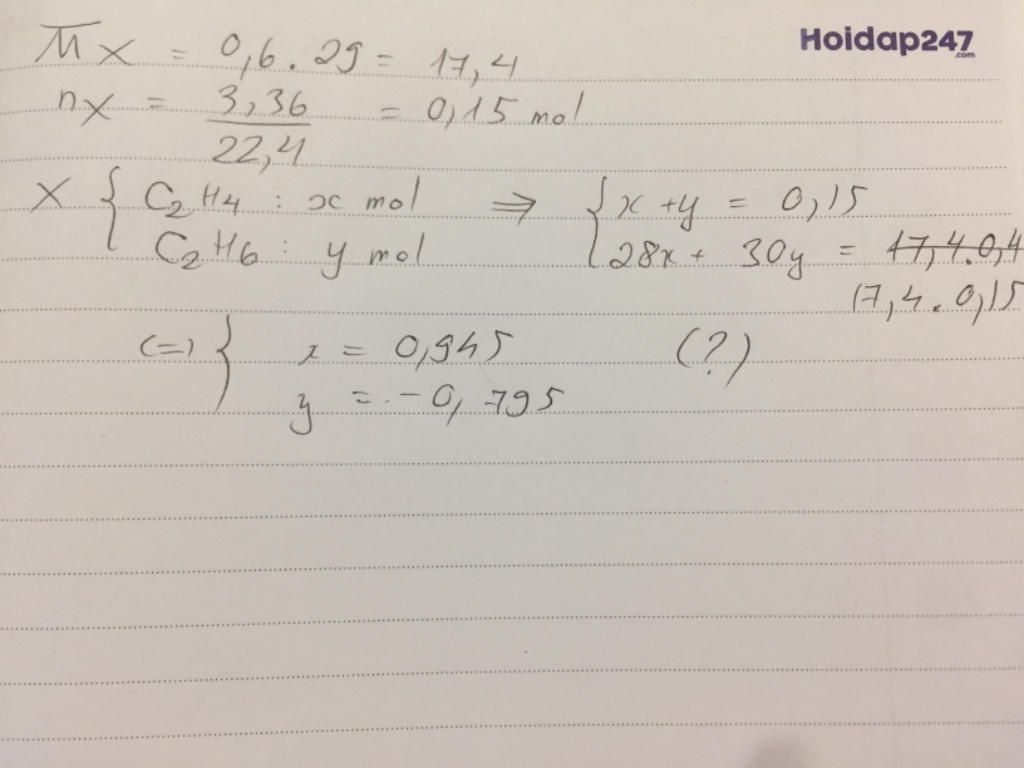 Hoidap247
.com
M̅x = 0,6 . 29 = 17,4
nx = 3,36 / 22,4 = 0,15 mol
X { C2H4 : x mol ⇒ { x + y = 0,15
C2H6 : y mol 28x + 30y = 17,4.0,4
17,4 . 0,15
(=) { x = 0,945 (?)
y = - 0,795